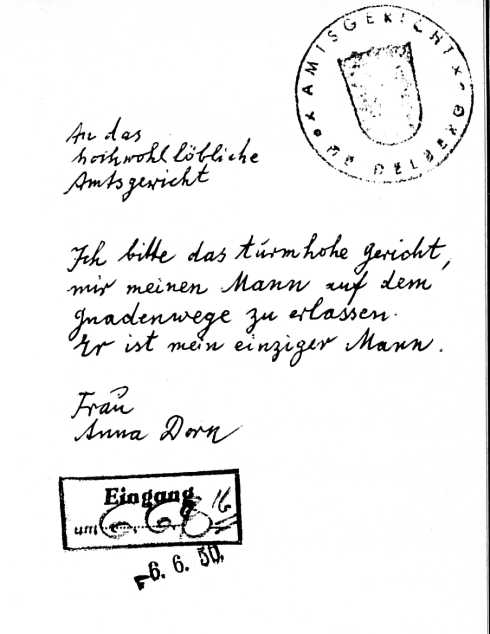 AMTSGERICHT
An das
hochwohllöbliche
Amtsgericht
Ich bitte das turmhohe gericht,
mir meinen Mann auf dem
gnadenwege zu erlassen.
Er ist mein einziger Mann.
Frau
Anna Dorn
Eingang
um
6. 6. 50.